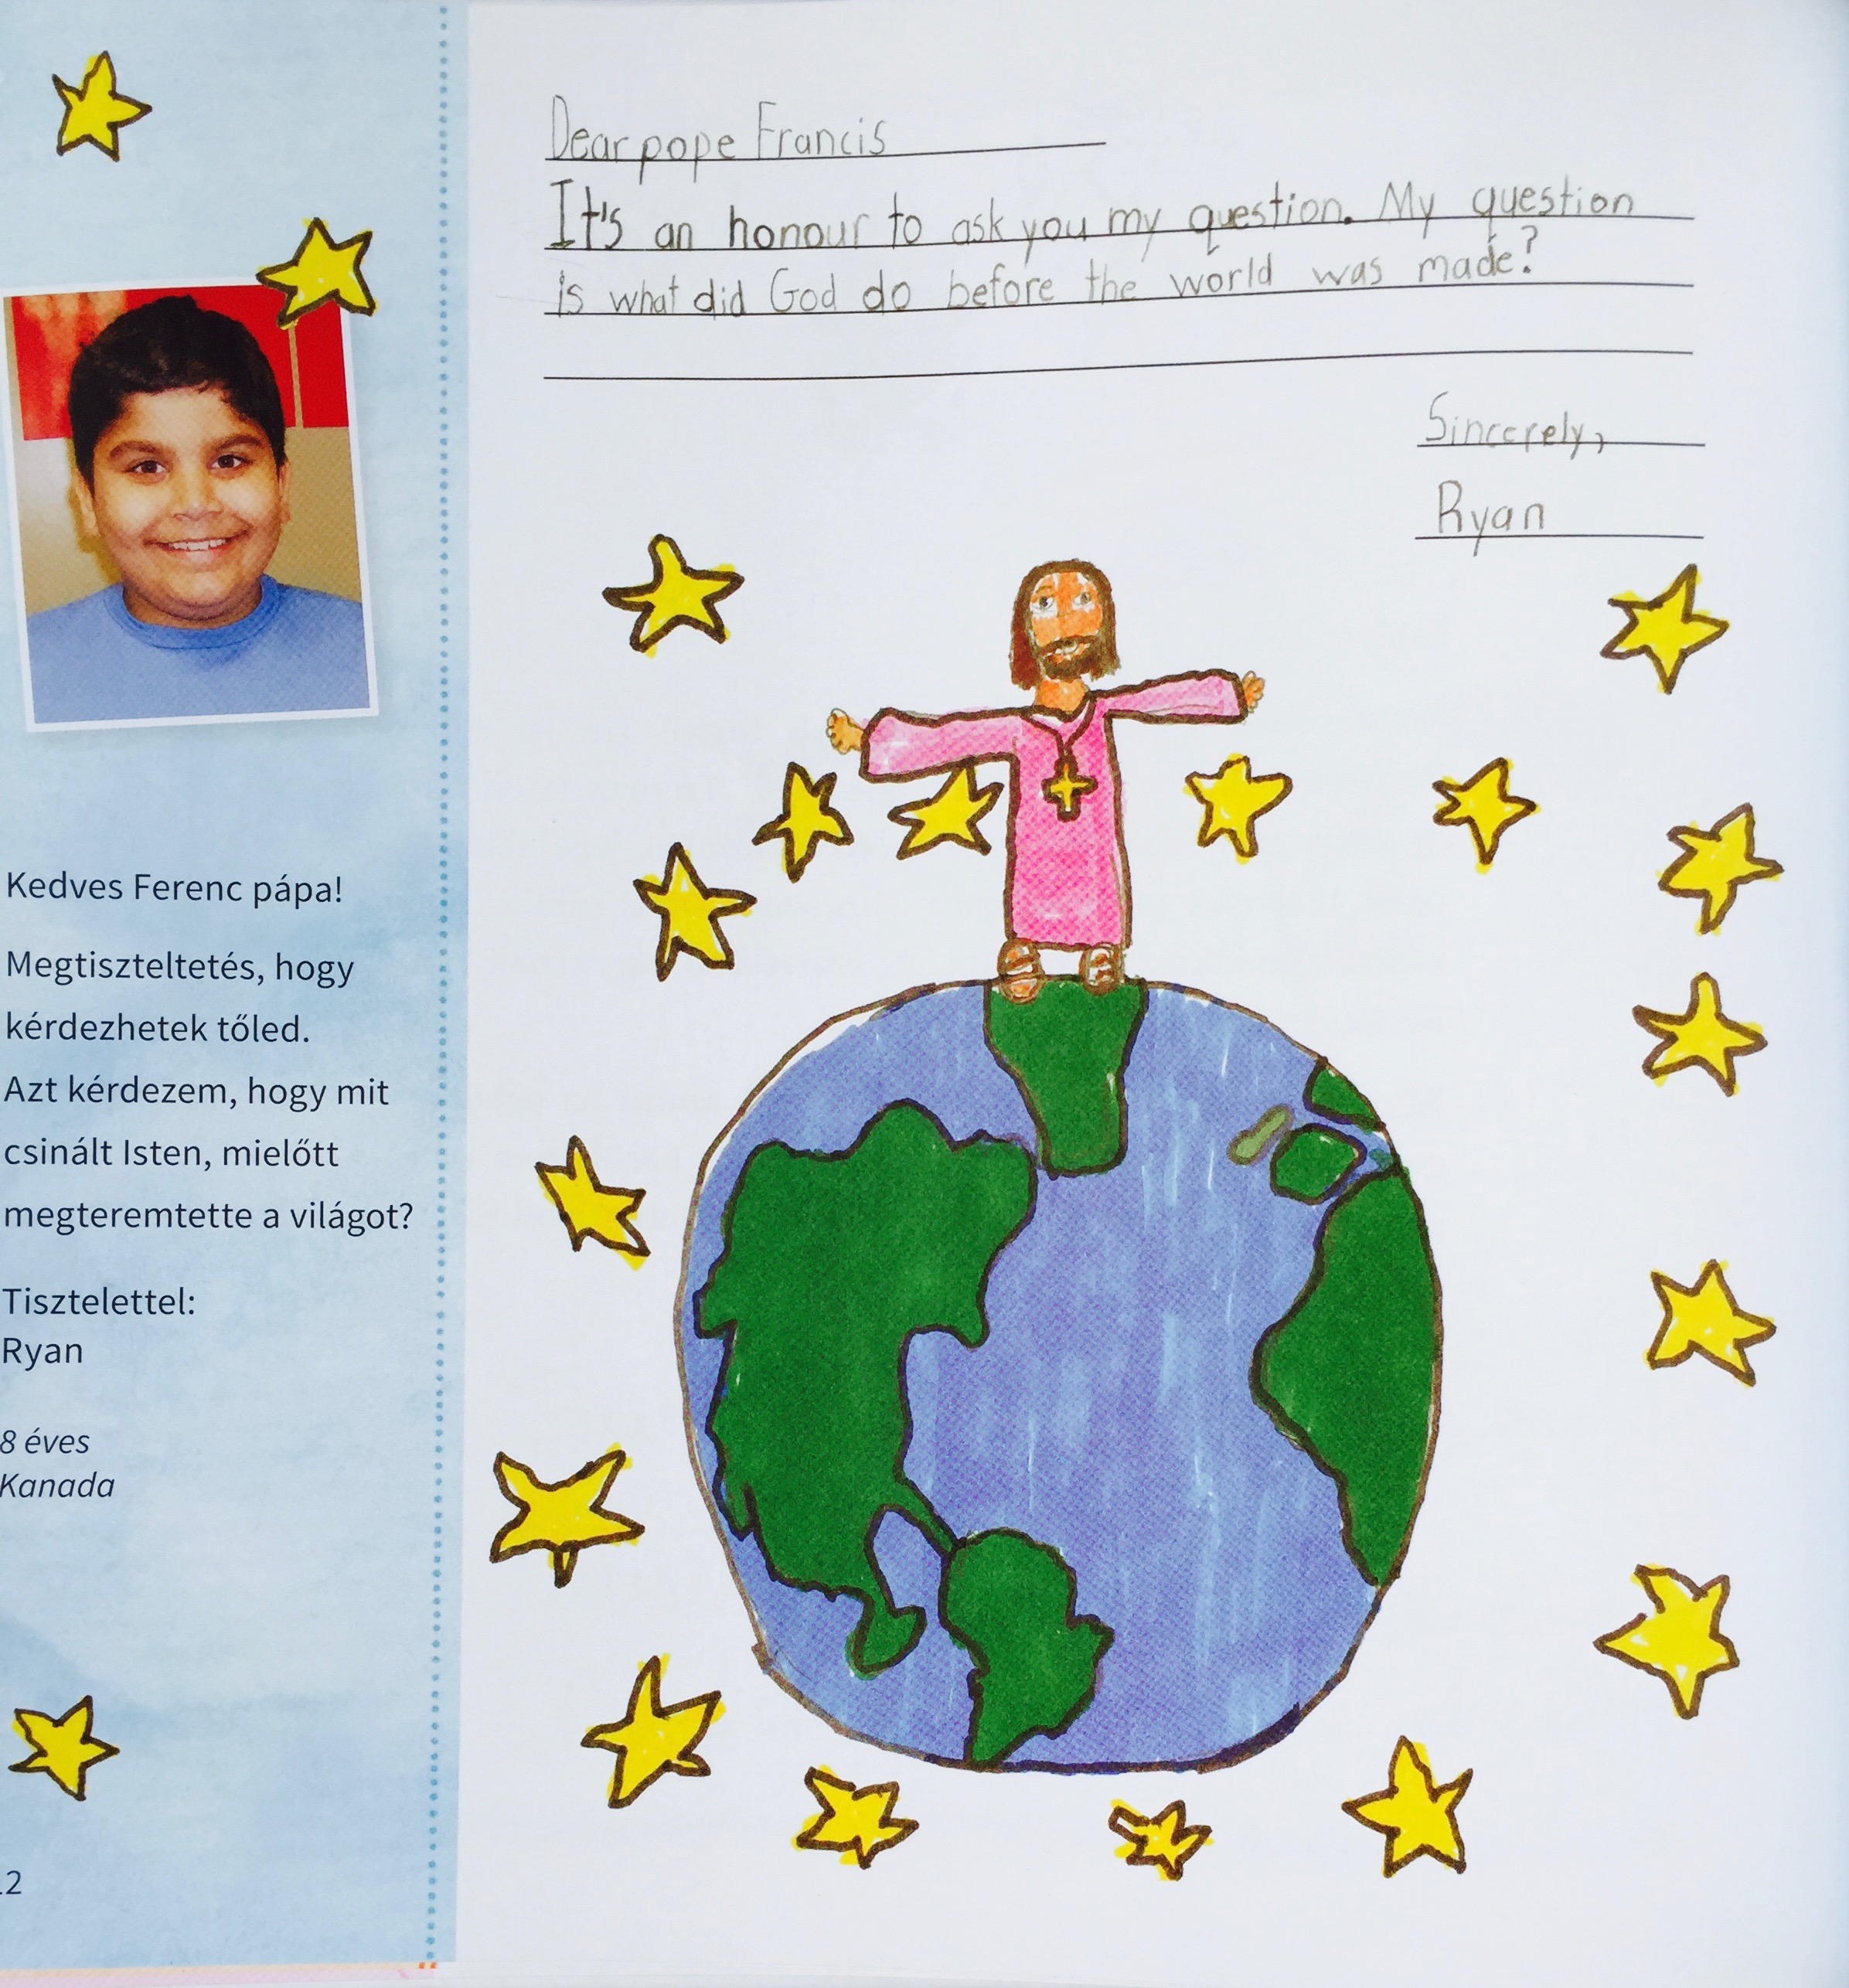 Dear pope Francis
It's an honour to ask you my question. My question
is what did God do before the world was made?
Sincerely,
Ryan
Kedves Ferenc pápa!
Megtiszteltetés, hogy
kérdezhetek tőled.
Azt kérdezem, hogy mit
csinált Isten, mielőtt
megteremtette a világot?
Tisztelettel:
Ryan
8 éves
Kanada
2